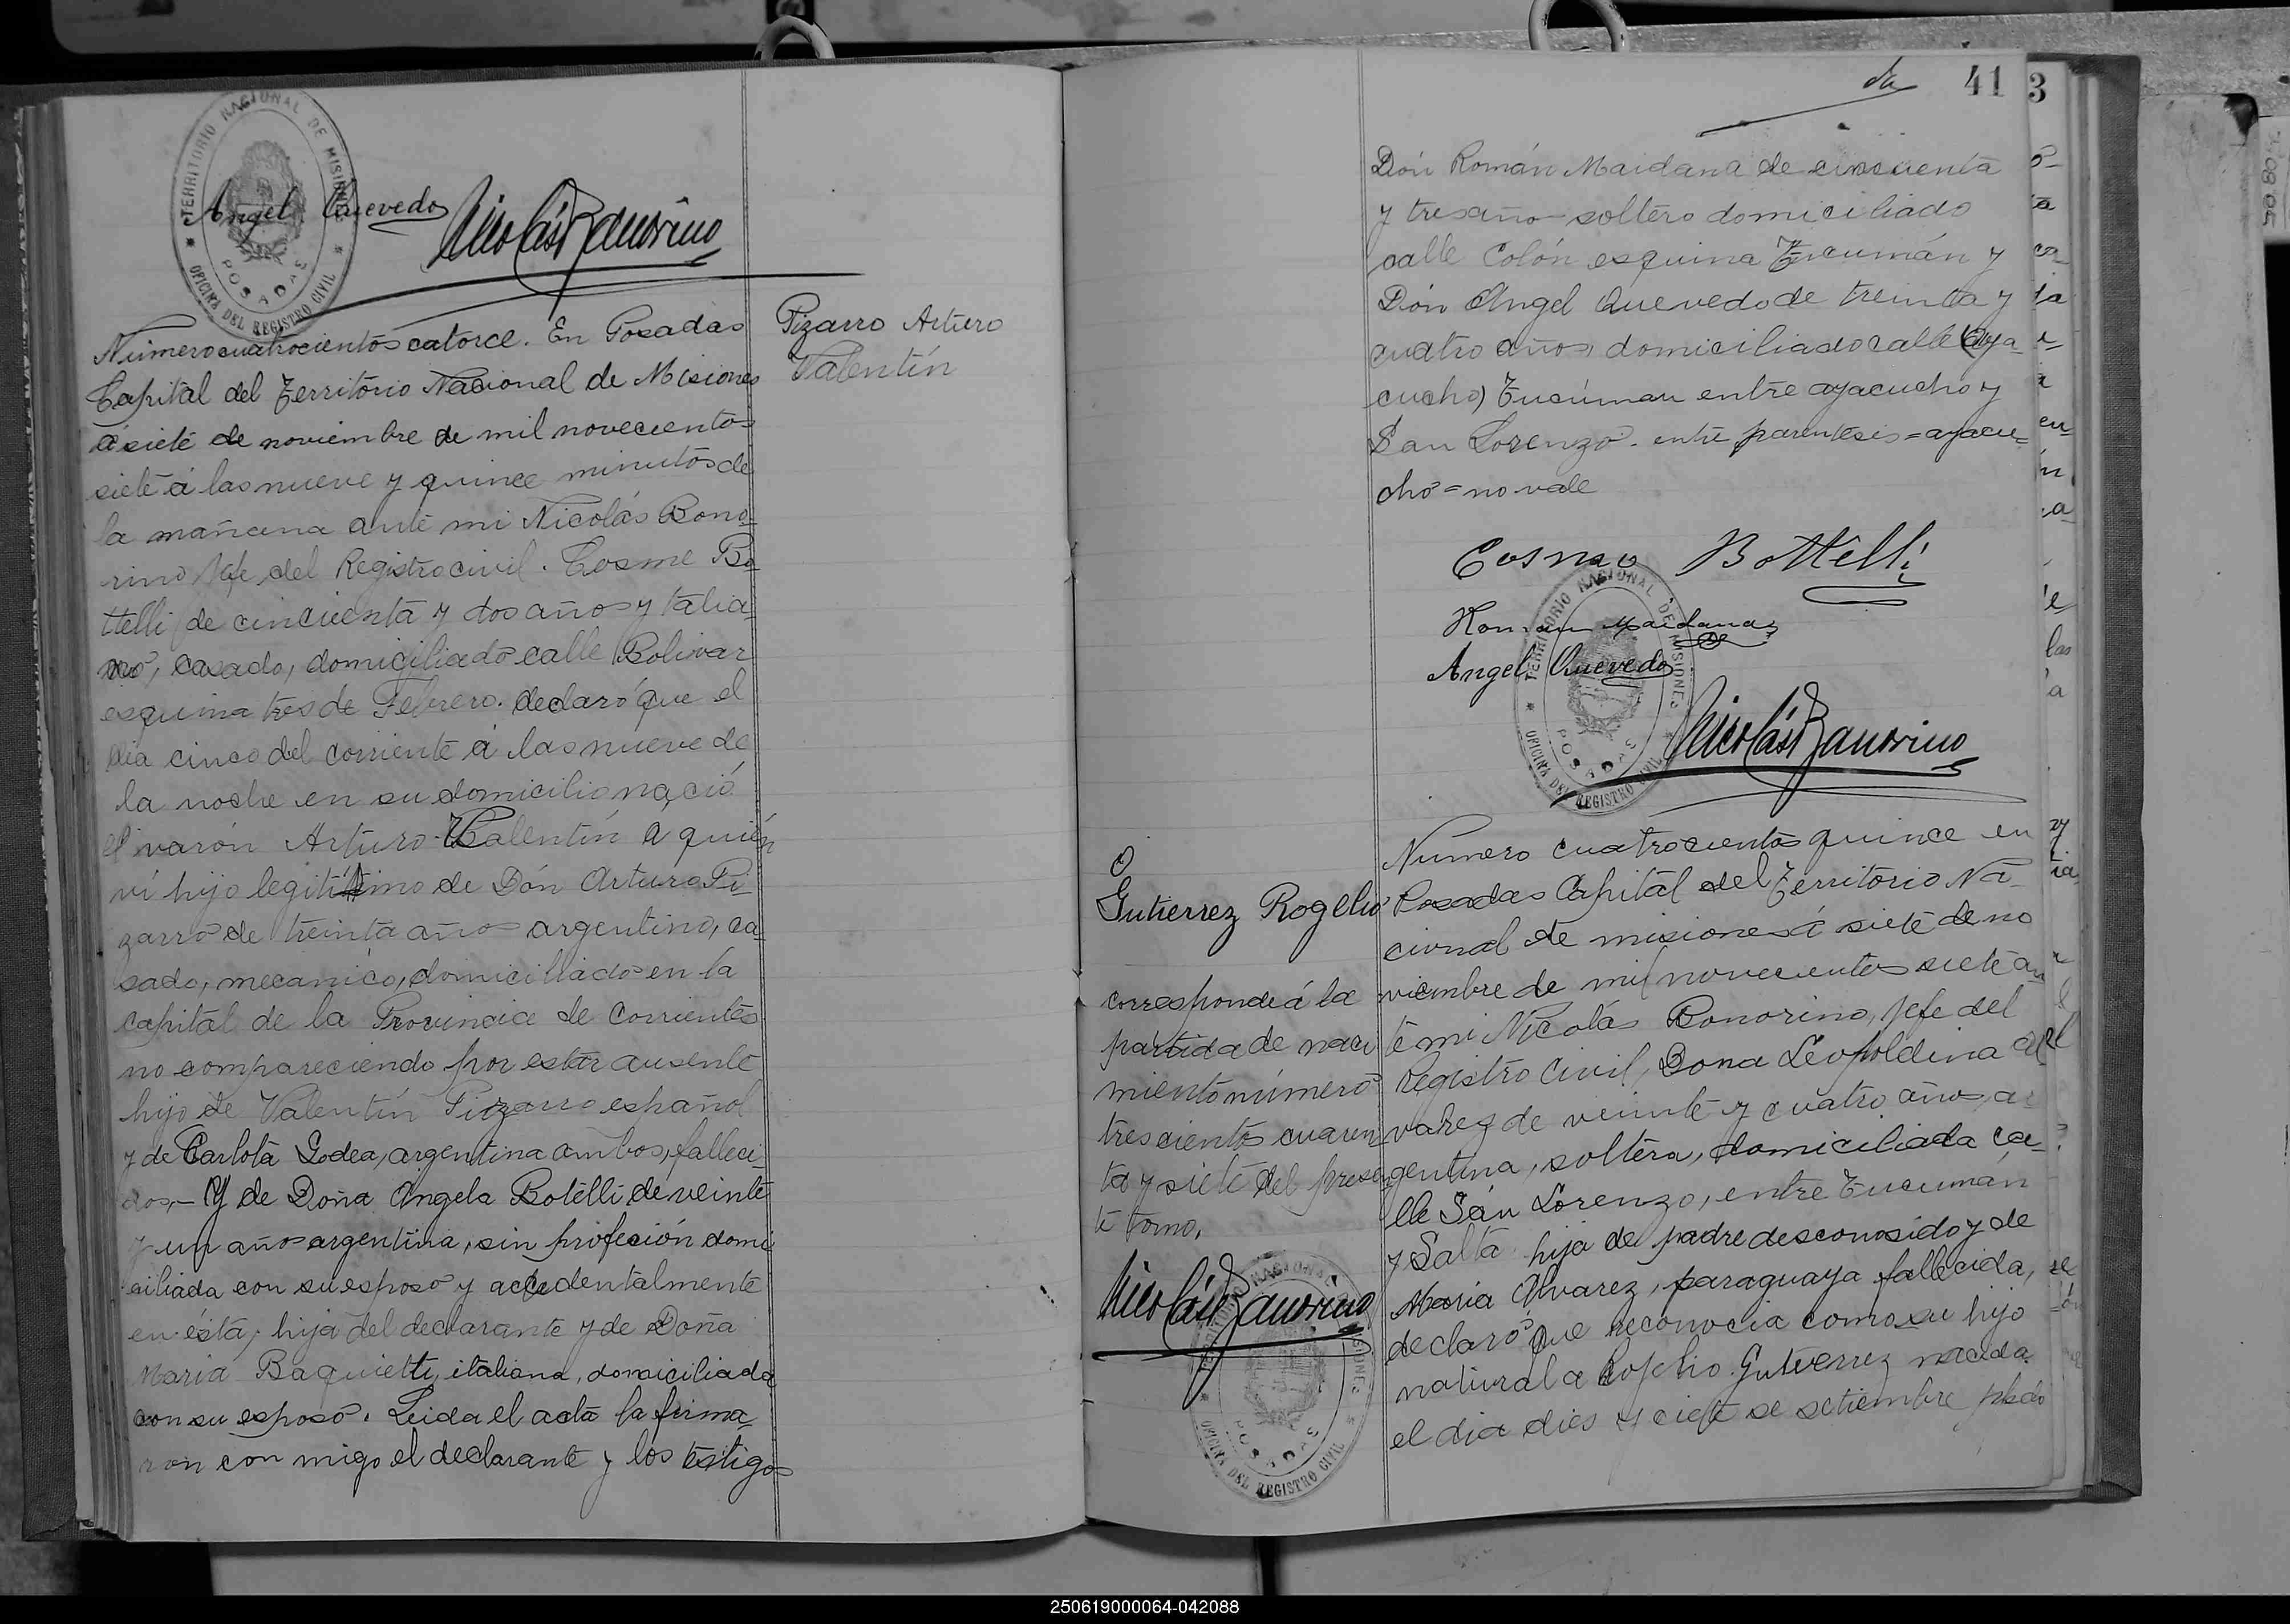 TERRITORIO NACIONAL DE MISIONES
OFICINA DEL REGISTRO CIVIL
POSADAS
Angel Quevedo
Nicolás Bonorino
Pizarro Arturo
Valentín
Número cuatrocientos catorce. En Posadas
Capital del Territorio Nacional de Misiones
á siete de noviembre de mil novecientos
siete á las nueve y quince minutos de
la mañana ante mi Nicolás Bono-
rino Jefe del Registro civil. Cosme Bo-
ttelli de cincuenta y dos años ytalia-
no, casado, domiciliado calle Bolivar
esquina tres de Febrero. declaró que el
dia cinco del corriente á las nueve de
la noche en su domicilio nació
el varón Arturo Valentín a quién
ví hijo legitimo de Dón Arturo Pi-
zarro de treinta años argentino, ca-
sado, mecanico, domiciliado en la
capital de la Provincia de Corrientes
no compareciendo por estar ausente
hijo de Valentín Pizarro español
y de Carlota Godea, argentina ambos, falleci-
dos,- Y de Doña Angela Botelli de veinte
y un años argentina, sin profesión domi
ciliada con su esposo y accidentalmente
en ésta, hija del declarante y de Doña
Maria Baquietti, italiana, domiciliada
con su esposo. Leida el acta la firma-
ron con migo el declarante y los testigos
41
3
Dón Román Maidana de cincuenta
y tres año soltero domiciliado
calle Colón esquina Tucumán y
Dón Angel Quevedo de treinta y
cuatro años, domiciliado calle (aya-
cucho) Tucúman entre ayacucho y
San Lorenzo. entre parentesis=ayacu=
cho=no vale
Cosmo Bottelli
Roman Maidana
Angel Quevedo
TERRITORIO NACIONAL DE MISIONES
OFICINA DEL REGISTRO CIVIL
POSADAS
Nicolás Bonorino
Gutierrez Rogelio
corresponde á la
partida de naci
miento número
trescientos cuaren
ta y siete del presen
te tomo.
Nicolás Bonorino
NACIONAL
OFICINA DEL REGISTRO CIVIL
POSADAS
Número cuatrocientos quince en
Posadas Capital del Territorio Na-
cional de misiones á siete de no
viembre de mil novecientos siete an
te mi Nicolás Bonorino, Jefe del
Registro Civil, Dona Leopoldina Al
varez de veinte y cuatro años, ar
gentina, soltera, domiciliada ca-
lle San Lorenzo, entre Tucumán
y Salta hija de padre desconosido y de
Maria Alvarez, paraguaya fallecida,
declaró que reconocia como su hijo
natural a Rogelio Gutierrez nacido
el dia dies y ciete de setiembre ppdo
250619000064-042088